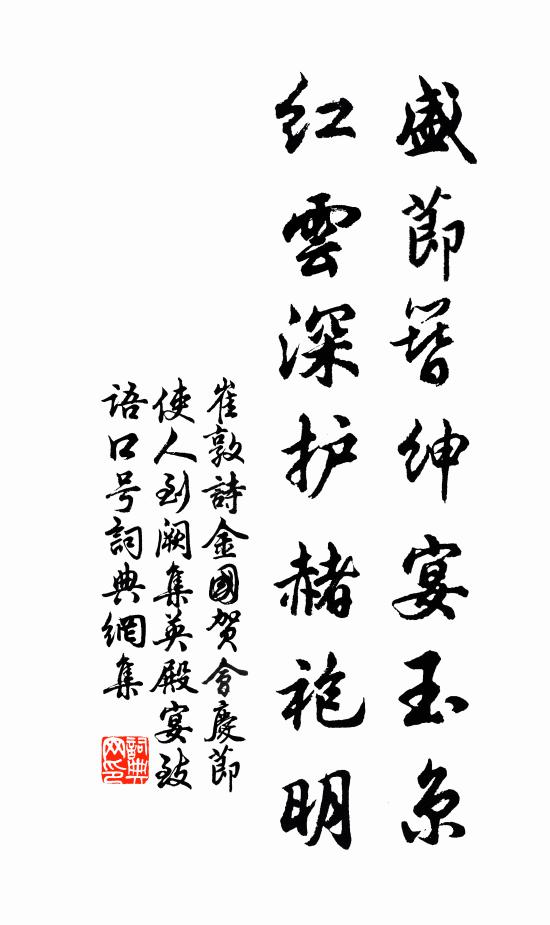 盛節簪紳宴玉京
紅雲深护赭袍明
崔敦詩金國贺會慶節
使人到阙集英殿宴致
语口号詞典網集
詞典
网印